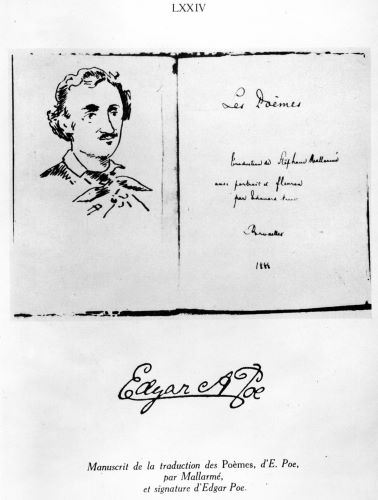 LXXIV
Les Poèmes
traduction de Stéphane Mallarmé
avec portrait et fleuron
par Edouard Manet
Bruxelles
1888
Edgar A Poe
Manuscrit de la traduction des Poèmes, d'E. Poe,
par Mallarmé,
et signature d'Edgar Poe.